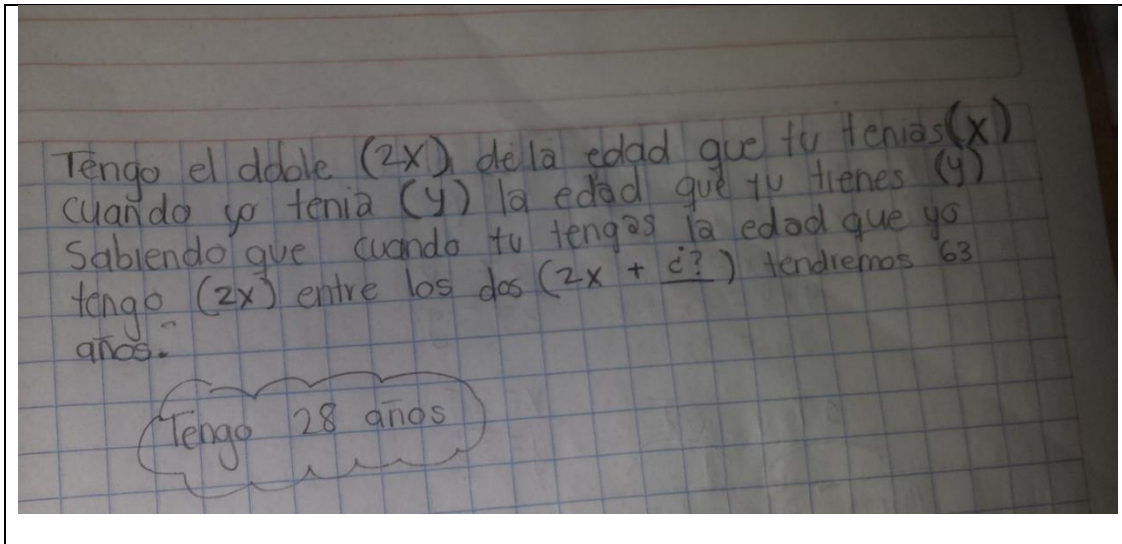 Tengo el doble (2x) de la edad que tu tenias (x)
cuando yo tenia (y) la edad que tu tienes (y)
Sabiendo que cuando tu tengas la edad que yo
tengo (2x) entre los dos (2x + ¿?) tendremos 63
años.
Tengo 28 años